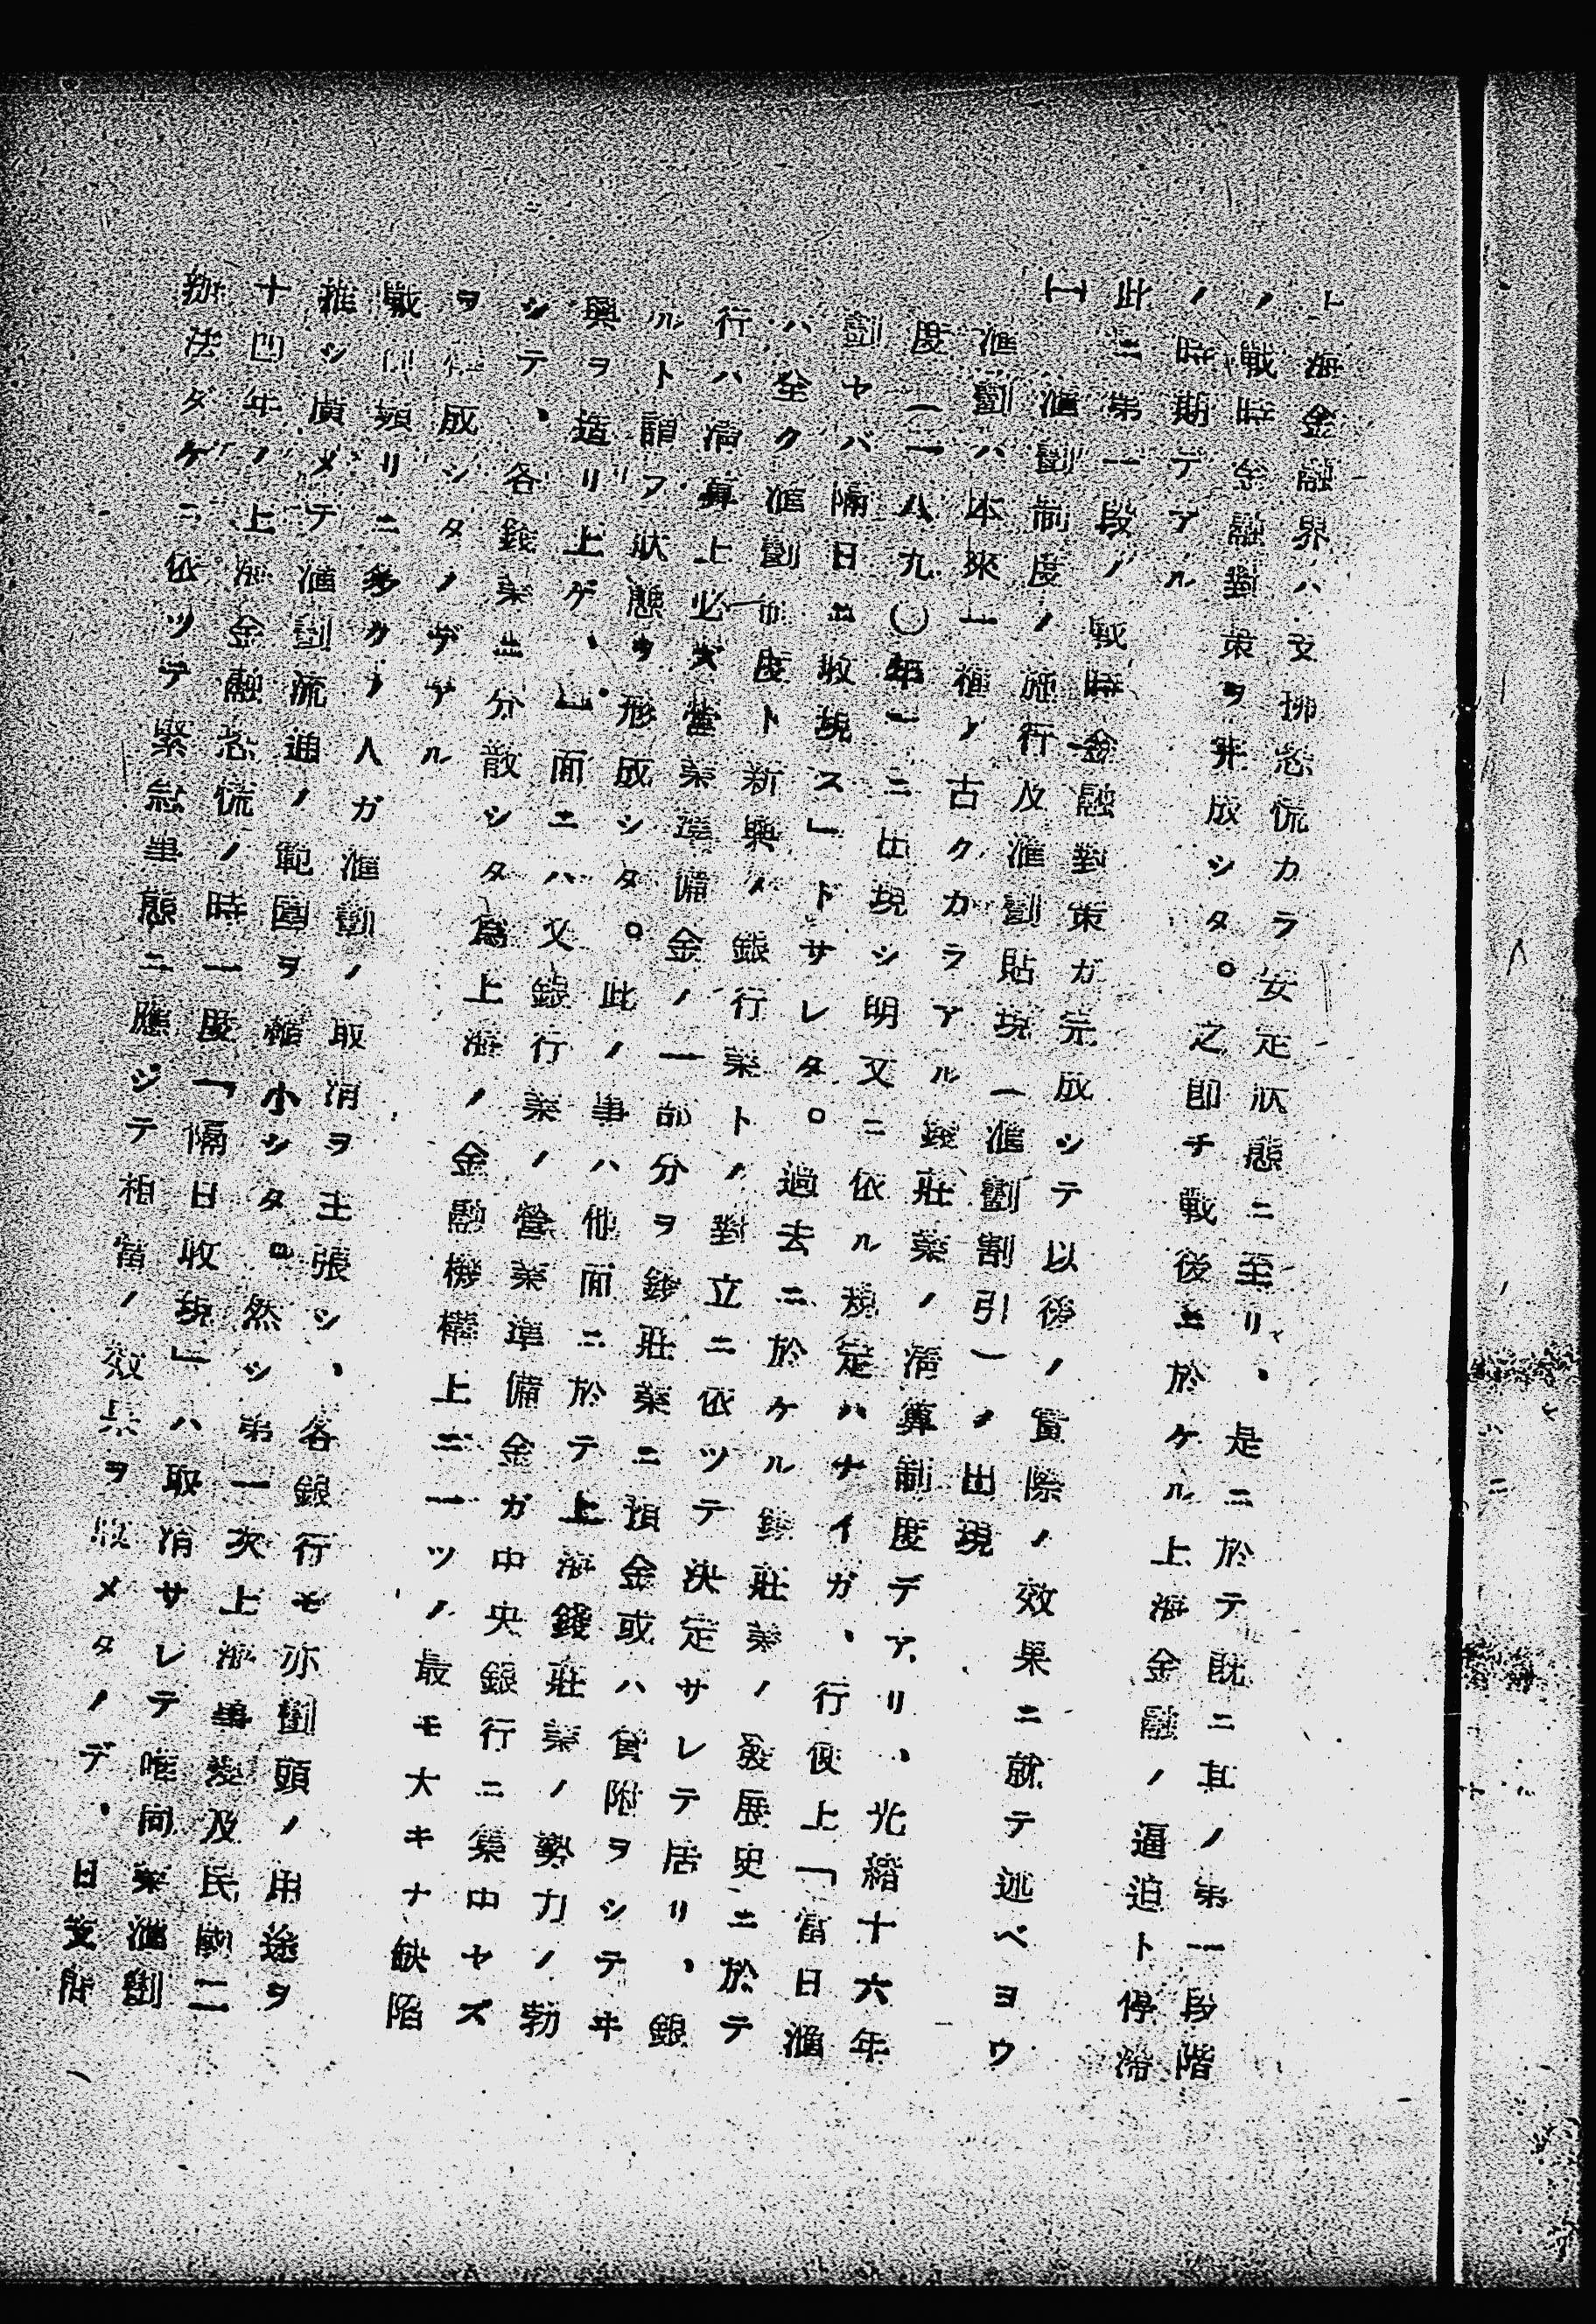 上海金融界ハ支拂恐慌カラ安定狀態ニ至リ、是ニ於テ既ニ其ノ第一段階
ノ戰時金融對策ヲ完成シタ。之卽チ戰後ニ於ケル上海金融ノ逼迫ト停滯
ノ時期デアル
此ニ第一段ノ戰時金融對策ガ完成シテ以後ノ實際ノ效果ニ就テ述ベヨウ
(一)滙劃制度ノ施行及滙劃貼現(滙劃割引)ノ出現
滙劃ハ本來一種ノ古クカラアル錢莊業ノ淸算制度デアリ、光緒十六年
度(一八九〇年)ニ出現シ明文ニ依ル規定ハナイガ、行使上「當日滙
劃ヤバ隔日ニ收現ス」ドサレタ。過去ニ於ケル錢莊業ノ發展史ニ於テ
ハ全ク滙劃制度ト新興ノ銀行業トノ對立ニ依ツテ決定サレテ居リ、銀
行ハ淸算上必ズ營業準備金ノ一部分ヲ錢莊業ニ預金或ハ貸附ヲシテヰ
ルト謂フ狀態ヲ形成シタ。此ノ事ハ他面ニ於テ上海錢莊業ノ勢力ノ勃
興ヲ造リ上ゲ、一面ニハ又銀行業ノ營業準備金ガ中央銀行ニ集中ヤズ
シテ、各錢業ニ分散シタ爲上海ノ金融機構上ニ一ツノ最モ大キナ缺陷
ヲ 成シタノデアル
戰 頻リニ多クノ人ガ滙劃ノ取消ヲ主張シ、各銀行モ亦劃頭ノ用途ヲ
推シ廣メテ滙劃流通ノ範圍ヲ縮小シタ。然シ第一次上海事變及民國二
十四年ノ上海金融恐慌ノ時一度「隔日收現」ハ取消サレテ唯同業滙劃
辦法ダケニ依ツテ緊急事態ニ應ジテ相當ノ效果ヲ收メタノデ、日支